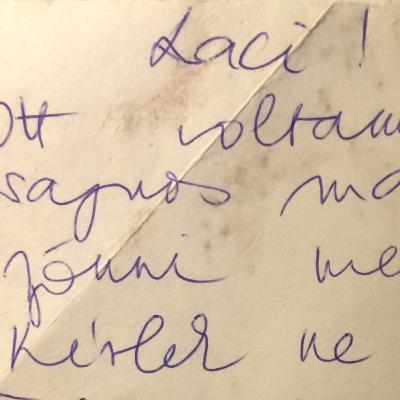 Laci!
Ott voltam
sagnos ma
jönni me
Kérlek ne